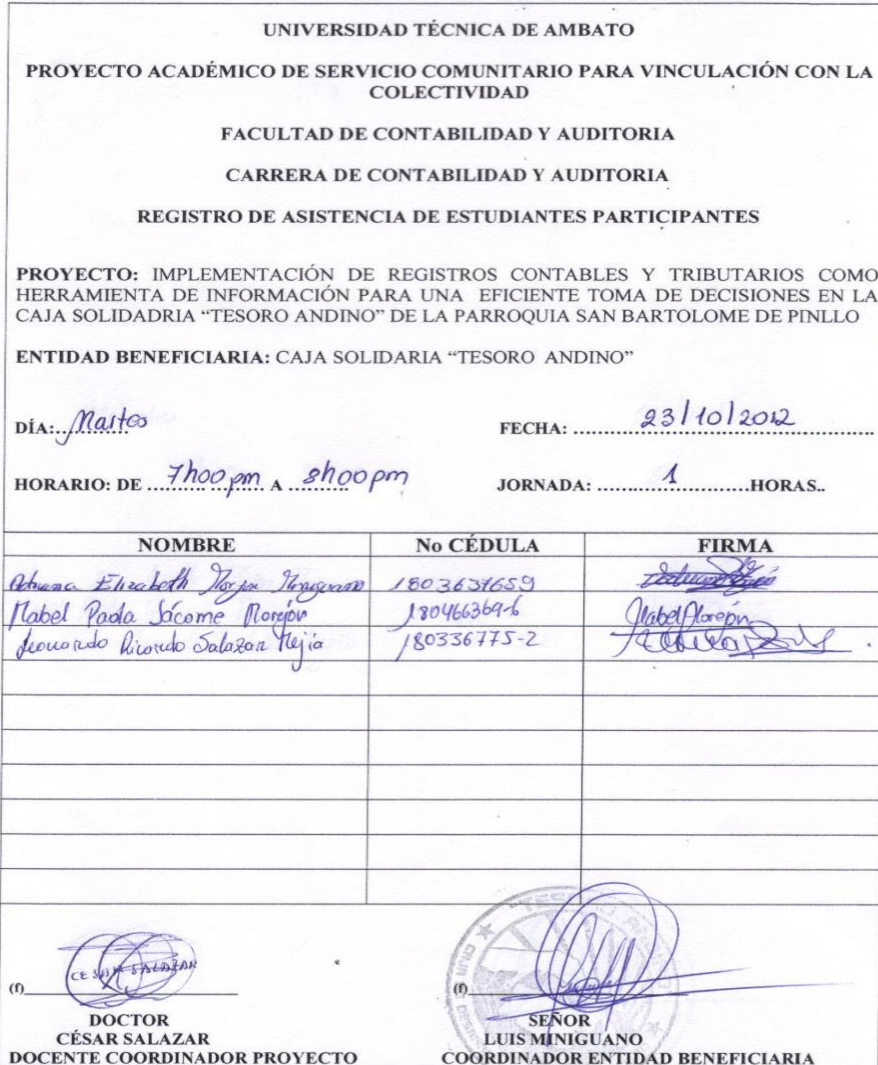 UNIVERSIDAD TÉCNICA DE AMBATO
PROYECTO ACADÉMICO DE SERVICIO COMUNITARIO PARA VINCULACIÓN CON LA
COLECTIVIDAD
FACULTAD DE CONTABILIDAD Y AUDITORIA
CARRERA DE CONTABILIDAD Y AUDITORIA
REGISTRO DE ASISTENCIA DE ESTUDIANTES PARTICIPANTES
PROYECTO: IMPLEMENTACIÓN DE REGISTROS CONTABLES Y TRIBUTARIOS COMO
HERRAMIENTA DE INFORMACIÓN PARA UNA EFICIENTE TOMA DE DECISIONES EN LA
CAJA SOLIDADRIA “TESORO ANDINO” DE LA PARROQUIA SAN BARTOLOME DE PINLLO
ENTIDAD BENEFICIARIA: CAJA SOLIDARIA “TESORO ANDINO”
DÍA: Martes FECHA: 23/10/2012
HORARIO: DE 7h00 pm A 8h00pm JORNADA: 1 HORAS..
NOMBRE No CÉDULA FIRMA
Elizabeth 1803637659
Mabel Paola Jácome Morejón 180466369-6 Mabel Morejón
Leonardo Ricardo Salazar Mejía 180336775-2
CESAR SALAZAR
(f) (f)
DOCTOR SEÑOR
CÉSAR SALAZAR LUIS MINIGUANO
DOCENTE COORDINADOR PROYECTO COORDINADOR ENTIDAD BENEFICIARIA